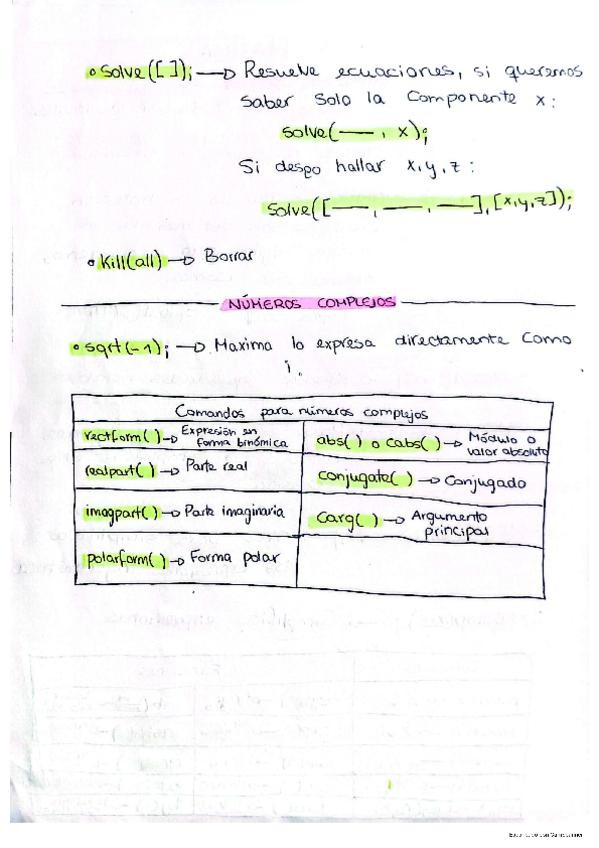 • solve([ ]); → Resuelve ecuaciones, si queremos
saber solo la componente x:
solve(—, x);
Si despo hallar x, y, z:
solve([—, —, —], [x,y,z]);
• Kill(all) → Borrar
NÚMEROS COMPLEJOS
• sqrt(-1); → Maxima lo expresa directamente como
i.
Comandos para números complejos
rectform( ) → Expresión en
forma binómica
abs( ) o cabs( ) → Módulo o
valor absoluto
realpart( ) → Parte real
conjugate( ) → Conjugado
imagpart( ) → Parte imaginaria
carg( ) → Argumento
principal
polarform( ) → Forma polar